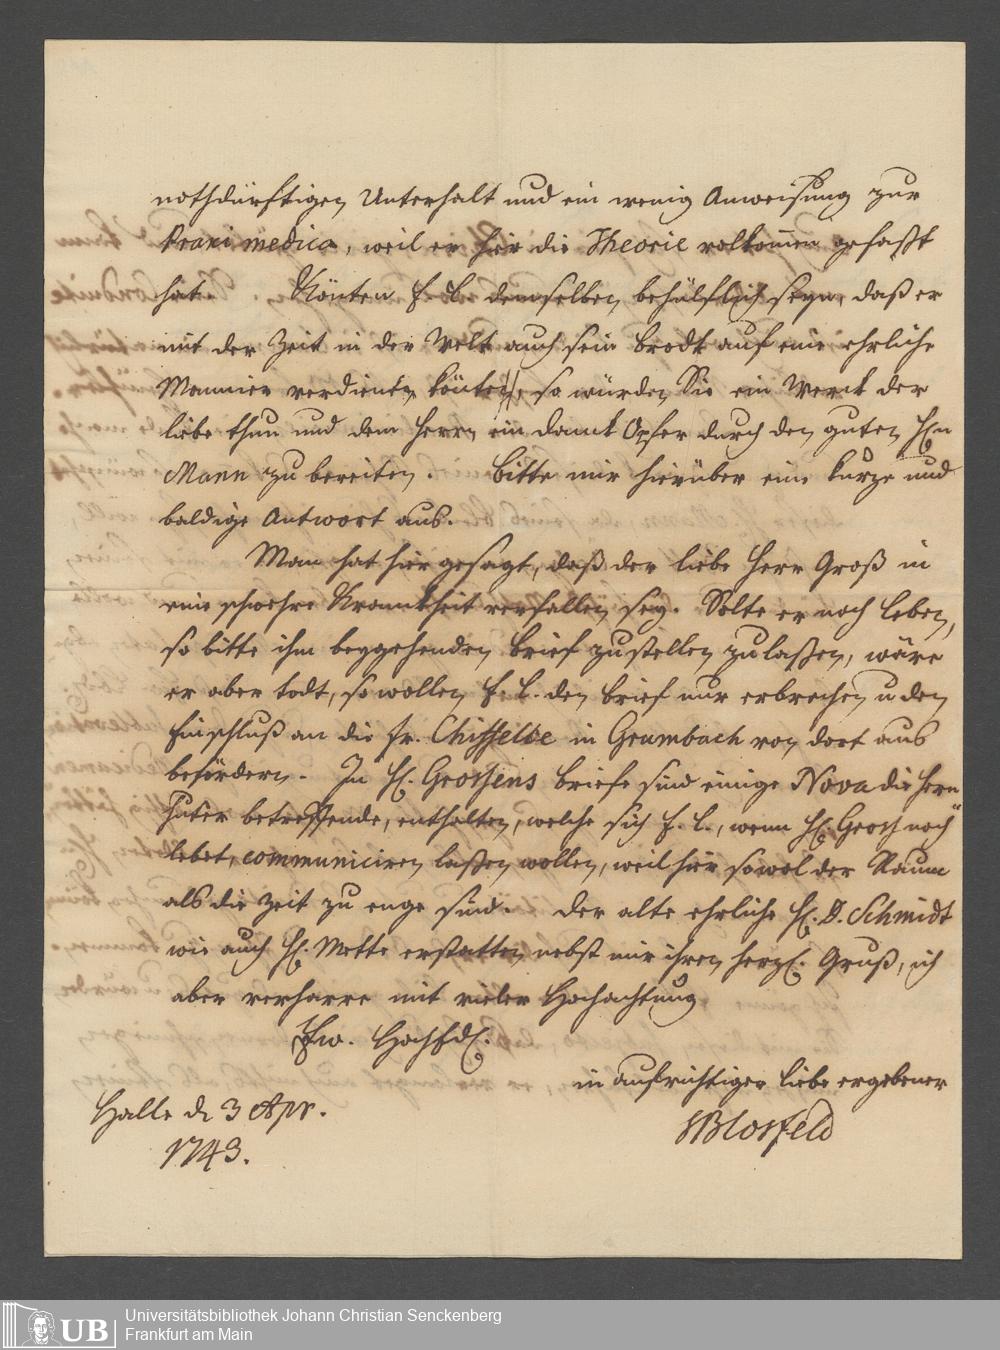 nothdürftigen Unterhalt und ein wenig Anweisung zur
Praxi medica, weil er hier die Theorie volkom̄en gefaßt
hat. Könten E. L. demselben behülflich seyn, daß er
mit der Zeit in der Welt auch sein Brodt auf eine ehrliche
Mannier verdienen könte, so würden Sie ein Werck der
Liebe thun und dem Herrn ein Danck Opfer durch den guten Hrn
Mann zu bereiten. Bitte mir hierüber eine kurze und
baldige Antwort aus.
Man hat hier gesagt, daß der liebe Herr Groß in
eine schwehre Kranckheit verfallen sey. Solte er noch leben,
so bitte ihm beygehenden Brief zustellen zu laßen, wäre
er aber todt, so wollen E. L. den Brief nur erbrechen u den
Einschluß an die Fr. in Grumbach von dort aus
befördern. In H. Grossens Briefe sind einige Nova die Herrn=
huter betreffende, enthalten, welche sich E. L., wenn H. Gross noch
lebet, communiciren laßen wollen, weil hier sowol der Raum
als die Zeit zu enge sind. Der alte ehrliche H. D. Schmidt
wie auch H. Mette erstatten nebst mir ihren herzl. Gruß, ich
aber verharre mit vieler Hochachtung
Ew. Hochedl.
in aufrichtiger Liebe ergebener
Blosfeld
Halle d 3 Apr.
1743.
UB
Universitätsbibliothek Johann Christian Senckenberg
Frankfurt am Main